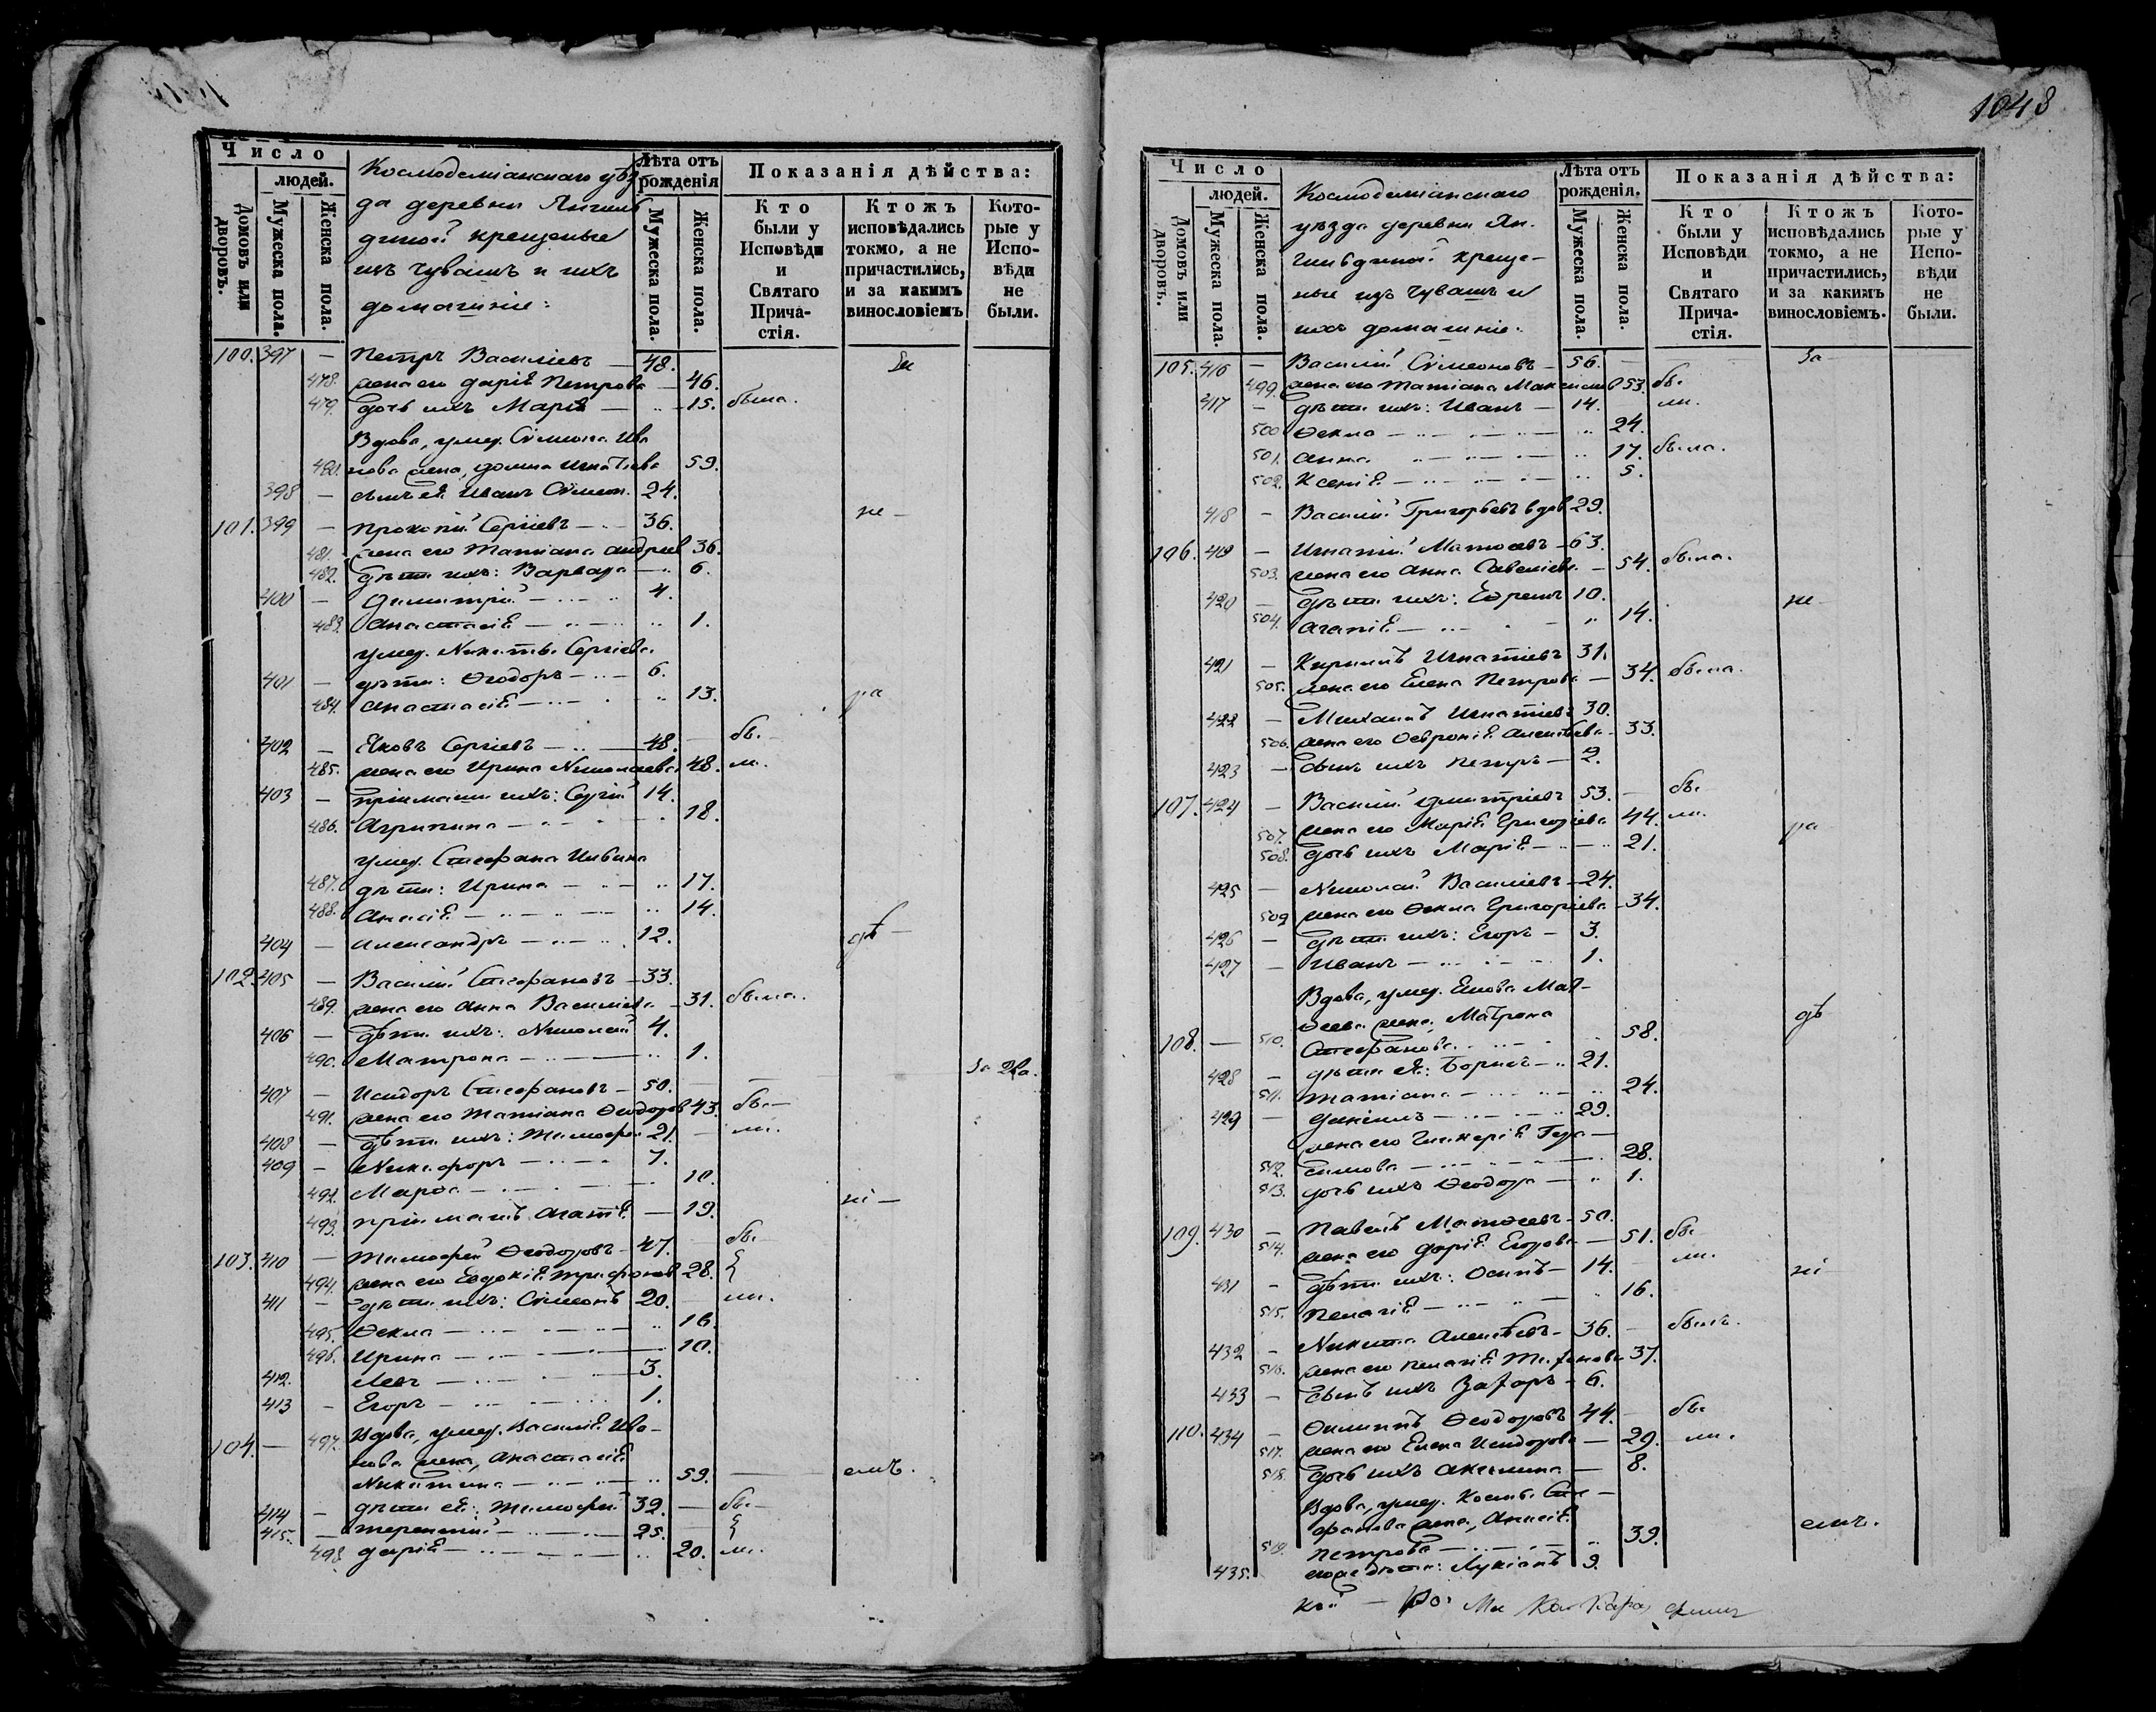 Число
людей.
Домовъ или дворовъ.
Мужеска пола.
Женска пола.
Космодемианскаго уѣз
да деревни Янгиль
диной крещеные
изъ чувашъ и ихъ
домашніе:
Лѣта отъ рожденія
Мужеска пола.
Женска пола.
Показанія дѣйства:
Кто были у Исповѣди и Святаго Прича-стія.
Ктожъ исповѣдались токмо, а не причастились, и за какимъ винословіемъ
Кото-рые у Испо-вѣди не были.
100. 397 — Петръ Василіевъ — 48. За
478. жена его Дарія Петрова — 46.
479. дочь ихъ Марія — 15. была.
Вдова, умер. Сѵмеона Ива
480. нова жена, Домна Игнатіева 59.
398 — сынъ ея Иванъ Сѵмеон. 24.
101. 399 — Прокопій Сергіевъ — 36. не —
481. жена его Татіана Андреев 36.
482. дѣти ихъ: Варвара — 6.
400 — Димитрій — 4.
483. Анастасія — 1.
умер. Никиты Сергіева
401 — дѣти: Ѳеодоръ — 6.
484. Анастасія — 13. ра
402 — Яковъ Сергіевъ — 48. — бы —
485. жена его Ирина Николаева 48. ли.
403 — пріимыши ихъ: Сергій 14.
486. Агрипина — 18.
умер. Стефана
487. дѣти: Ирина — 17.
488. Анисія — 14.
404 — Александръ — 12. дѣ —
102. 405 — Василій Стефановъ — 33.
489. жена его Анна Василіева — 31. была.
406 — дѣти ихъ: Николай 4.
490. Матрона — 1.
За два.
407 — Исидоръ Стефановъ — 50.
491. жена его Татіана Ѳеодоров 43. бы —
408 — дѣти ихъ: Тимоѳей 21. — ли.
409 — Никифоръ — 7.
492. Марѳа — 10.
493. пріимышъ Агаѳія — 19. ні —
103. 410 — Тимофей Ѳеодоровъ — 47. — бы —
494. жена его Евдокія Трифонов 28.
411 — дѣти ихъ: Сѵмеонъ 20. — ли.
495. Ѳекла — 16.
496. Ирина — 10.
412. Левъ — 3.
413 — Егоръ — 1.
104. — 497. Вдова, умер. Василія Ива —
нова жена, Анастасія
Никитина — 59. — емъ.
414 — дѣти ея: Тимофей 32. — бы —
415. — Терентій — 25.
498. Дарія — 20. ли.
1048
Число
людей.
Домовъ или дворовъ.
Мужеска пола.
Женска пола.
Космодемианскаго
уѣзда деревни Ян-
гильдиной креще-
ные изъ чувашъ и
ихъ домашніе:
Лѣта отъ рожденія.
Мужеска пола.
Женска пола.
Показанія дѣйства:
Кто были у Исповѣди и Святаго Прича-стія.
Ктожъ исповѣдались токмо, а не причастились, и за какимъ винословіемъ.
Кото-рые у Испо-вѣди не были.
105. 416 — Василій Сѵмеоновъ — 56. — За
499. жена его Татіана Максимов 53. бы —
417 — дѣти ихъ: Иванъ — 14. ли.
500 Ѳекла — 24.
501. Анна — 17. была.
502. Ксенія — 5.
418 — Василій Григорьевъ вдов 29.
106. 419 — Игнатій Матѳеевъ — 63.
503. жена его Анна Савеліева — 54. была.
420 — дѣти ихъ: Ефремъ 10. не
504. Агапія — 14.
421 — Кириллъ Игнатіевъ 31.
505. жена его Елена Петрова — 34. была.
422 — Михаилъ Игнатіевъ 30.
506. жена его Ѳевронія Алексѣева — 33.
423 — сынъ ихъ Петръ — 2.
107. 424 — Василій Димитріевъ 53. — бы
507. жена его Марія Григоріева 44. ли.
508. дочь ихъ Марія — 21. ра
425 — Николай Василіевъ — 24.
509 жена его Ѳекла Григоріева — 34.
426 — дѣти ихъ: Егоръ — 3.
427 — Иванъ — 1.
Вдова, умер. Мат-
ѳеева жена, Матрона
108. — 510. Стефанова — 58. дѣ
428 — дѣти ея: Борисъ — 21.
511. Татіана — 24.
429 — Даніилъ — 29.
жена его Гликерія Гера —
512. симова — 28.
513. дочь ихъ Ѳеодора — 1.
109. 430 — Павелъ Матѳеевъ — 50.
514. жена его Дарія Егорова — 51. бы —
431 — дѣти ихъ: Осипъ — 14. — ли. ні
515. Пелагія — 16.
432 — Никита Алексѣевъ — 36. — былъ.
516. жена его Пелагія 37.
433 — сынъ ихъ Захаръ — 6.
110. 434 — Филиппъ Ѳеодоровъ 44. — бы
517. жена его Елена Исидорова — 29. ли.
518. дочь ихъ Акилина — 8.
Вдова, умер. Косьмы Сте —
фанова жена, Анисія
519. Петрова — 39. емъ.
435. ея дѣти: Лукіанъ 9.